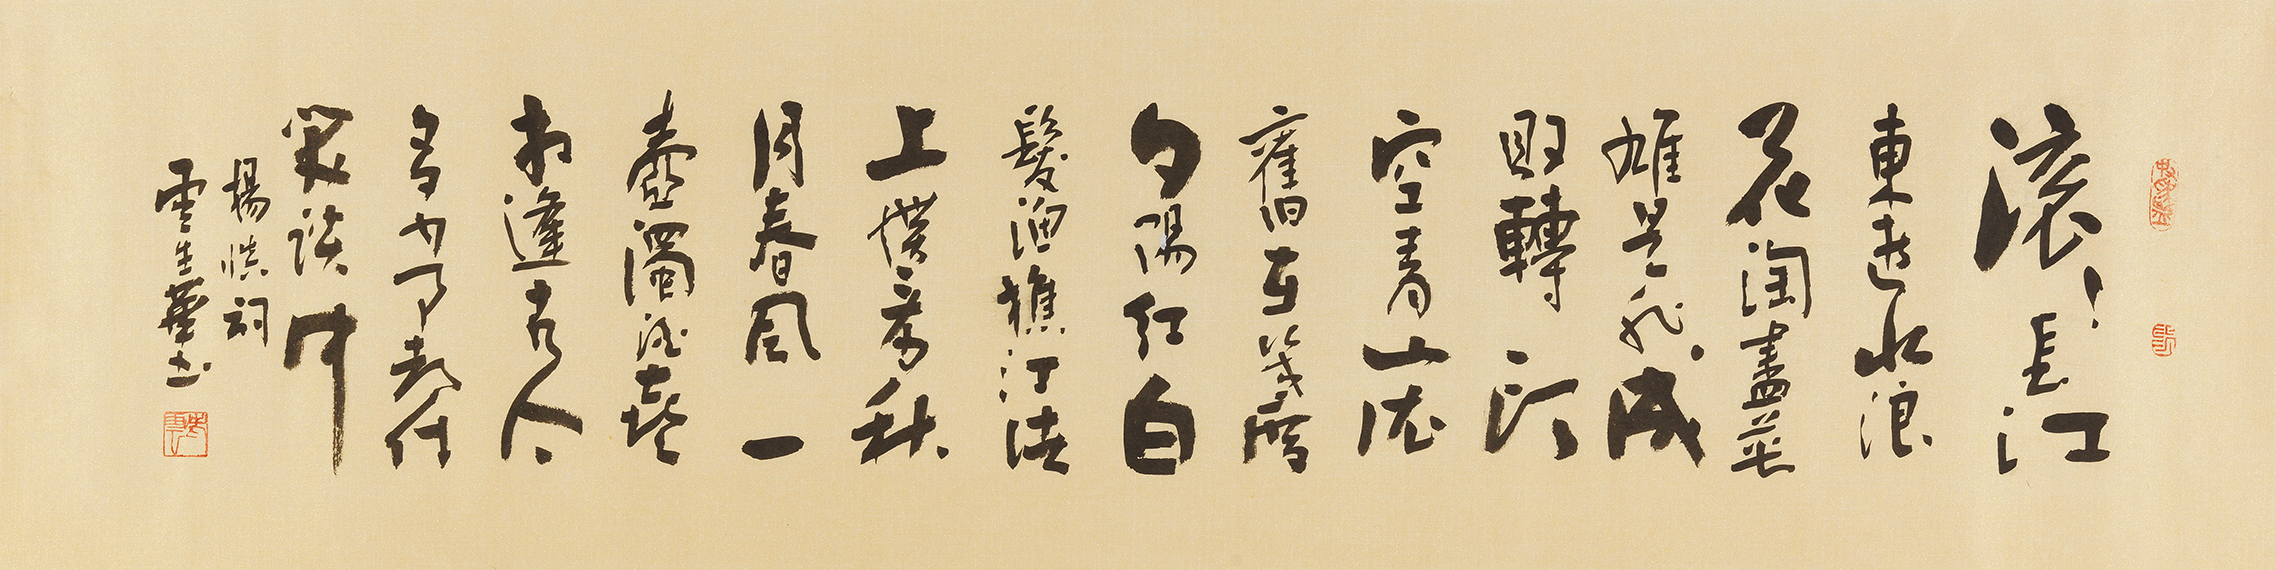 滚〻長江
東逝水浪
花淘盡英
雄是非成
敗轉頭
空青山依
舊在幾度
夕陽紅白
髮漁樵江渚
上慣看秋
月春風一
壺濁酒喜
相逢古今
多少事都付
笑談中
楊慎詞
雲生書